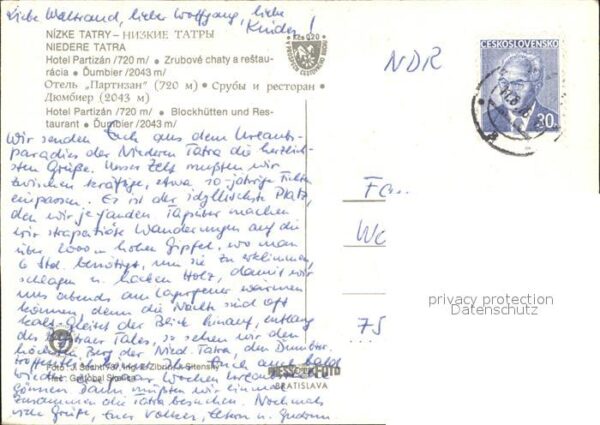 Liebe Waltraud, lieber Wolfgang, liebe
Kinder!
NÍZKE TATRY – НИЗКИЕ ТАТРЫ
NIEDERE TATRA
Hotel Partizán /720 m/ • Zrubové chaty a reštau-
rácia • Ďumbier /2043 m/
Отель „Партизан" (720 м) • Срубы и ресторан •
Дюмбиер (2043 м)
Hotel Partizán /720 m/ • Blockhütten und Res-
taurant • Ďumbier /2043 m/
Wir senden Euch aus dem Urlaubs-
paradies der Niederen Tatra die herzlich-
sten Grüße. Unser Zelt mußten wir
zwischen kräftige, etwa 10-jährige Fichten
einpassen. Es ist der idyllischste Platz,
den wir je fanden. Tagsüber machen
wir strapatiöse Wanderungen auf die
über 2000 m hohen Gipfel, wo man
6 Std. benötigt, um sie zu erklimmen,
schlagen u. hacken Holz, damit wir
uns abends am Lagerfeuer wärmen
können, denn die Nächte sind oft
kalt. Gleitet der Blick hinauf, entlang
des Tales, so sehen wir den
höchsten Berg der Nied. Tatra, den Ďumbier.
Hoffentlich Ihr Euch auch bald
wieder Wochen Urlaub
gönnen. Dann müßten wir einmal
zusammen die Tatra besuchen. Nochmals
viele Grüße, Eure Volker, u. Gudrun
Foto: J. Bechný, Ing. Z. Zibrín, K. Sitenský
Tlač: Gafobal Skalica
PRESSFOTO
BRATISLAVA
NDR
ČESKOSLOVENSKO
30
Fam.
75
privacy protection
Datenschutz